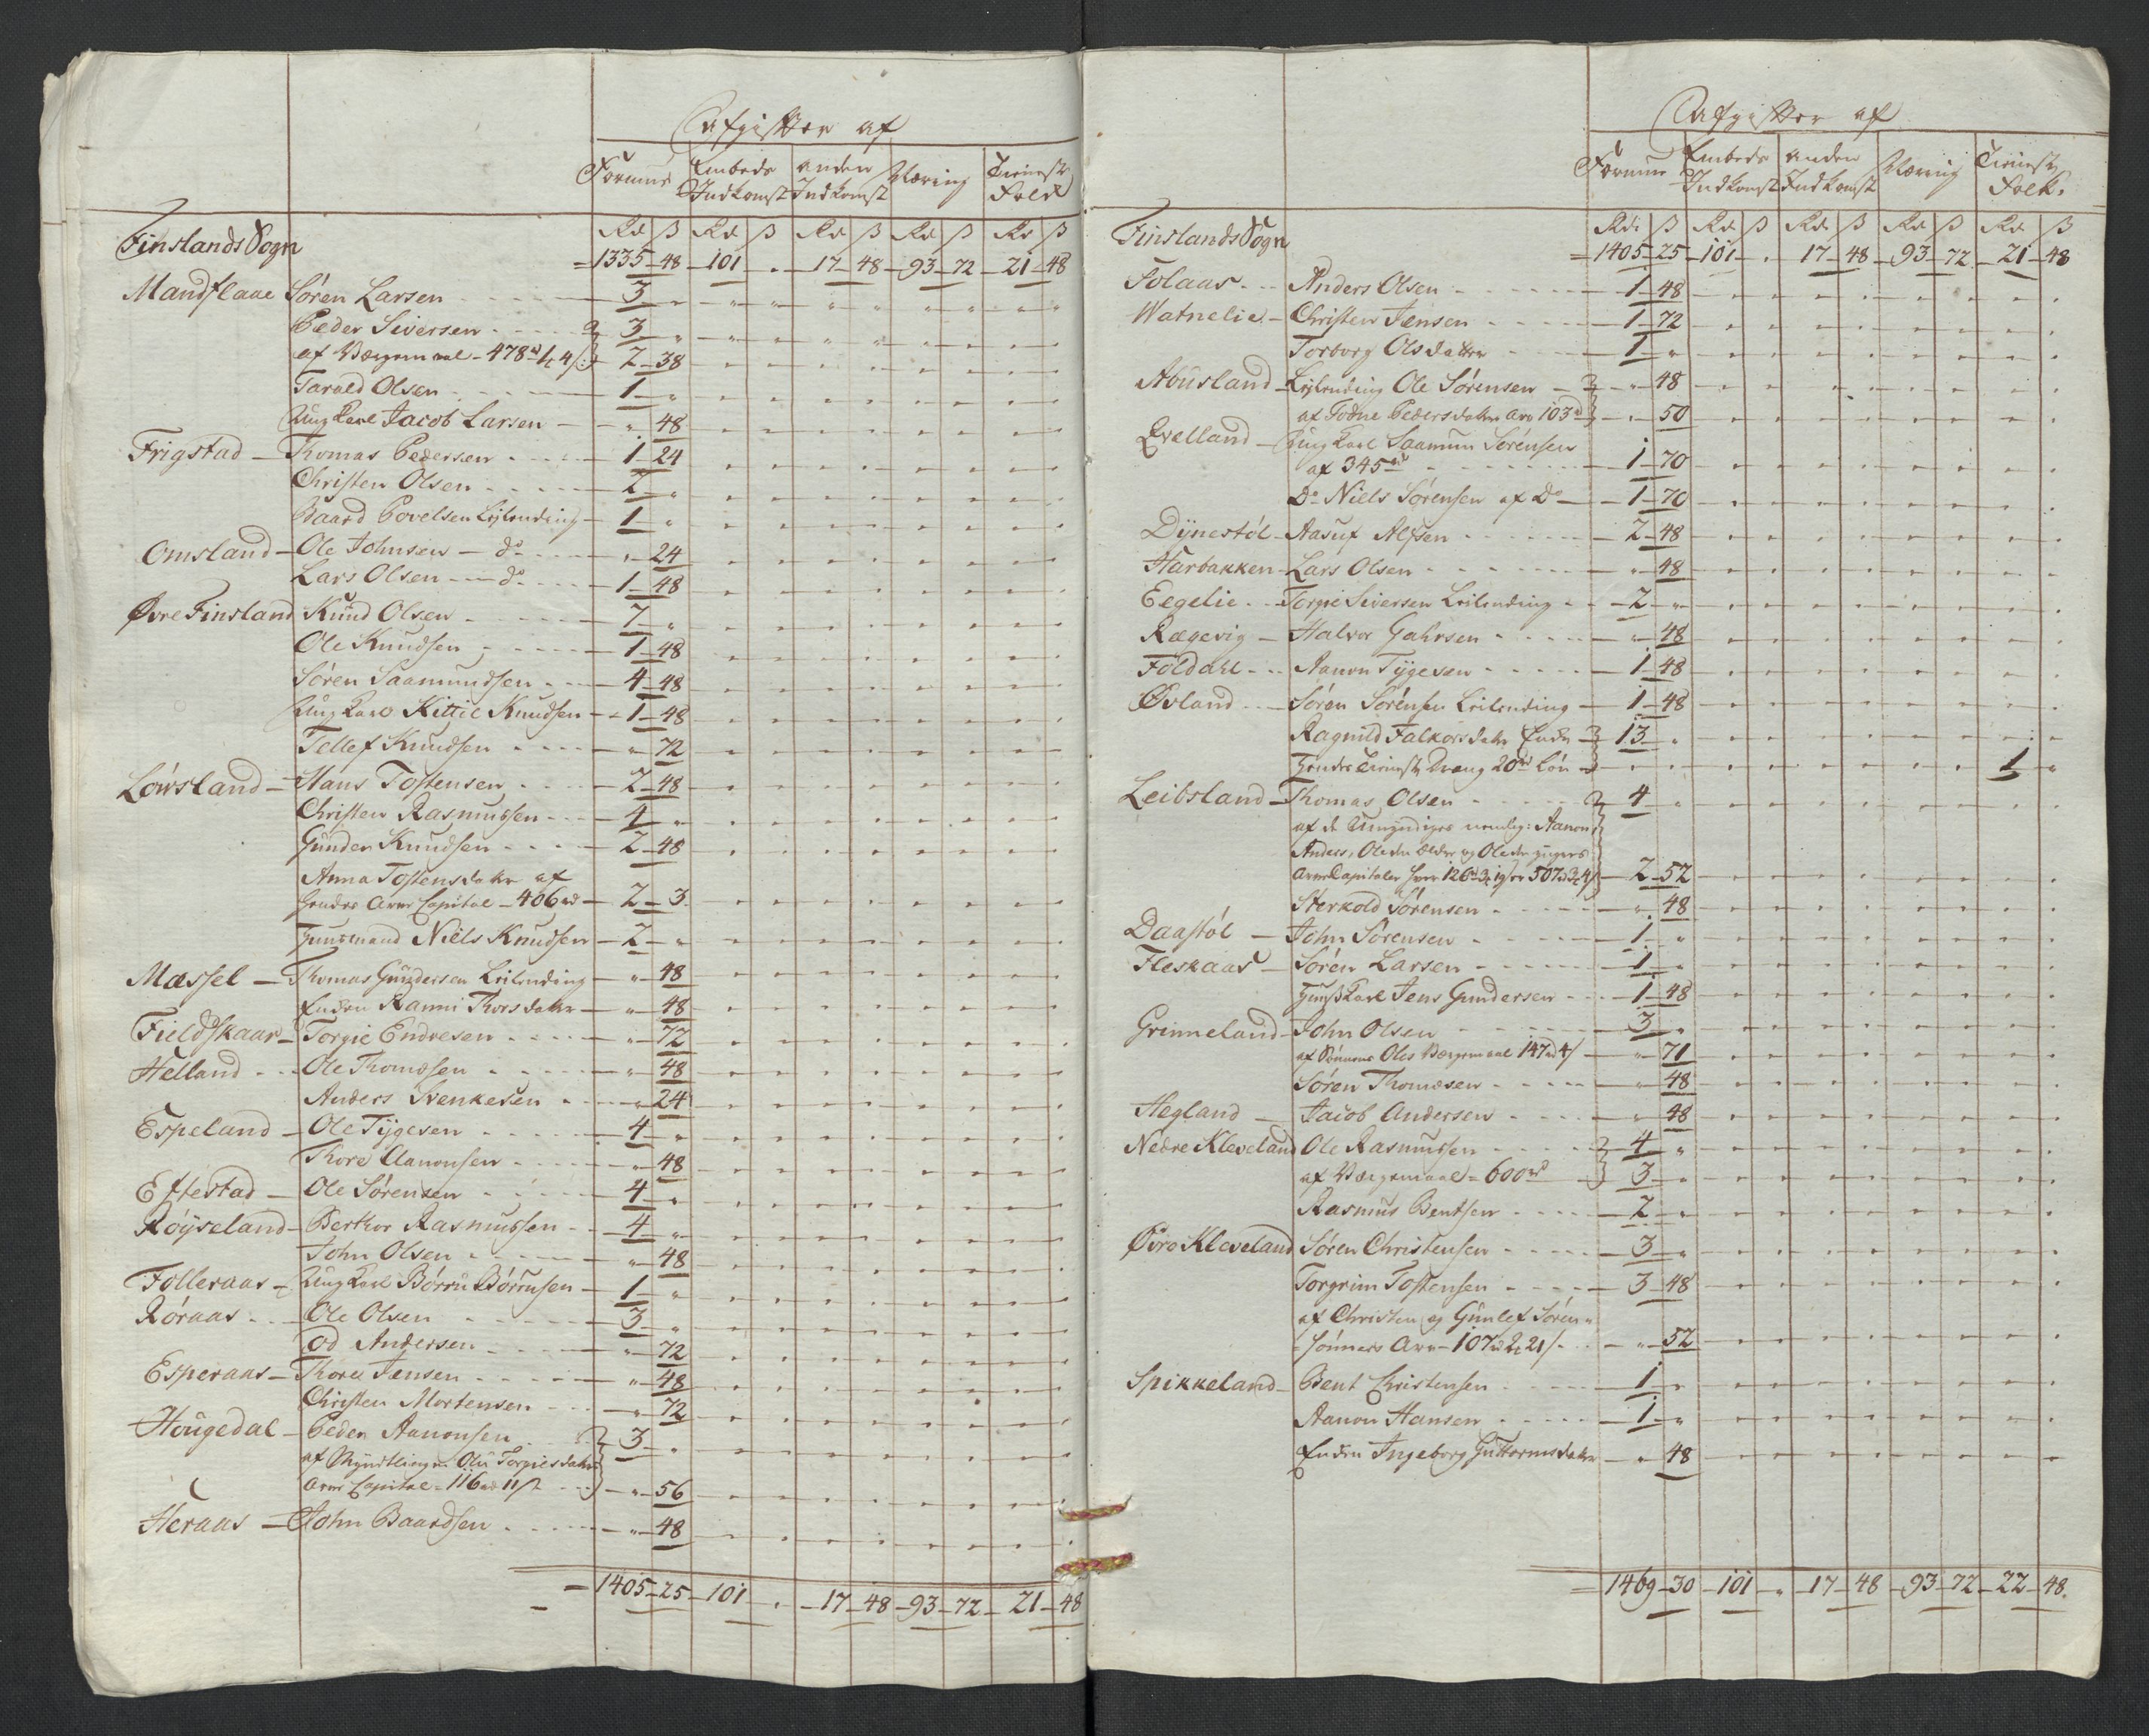 Afgifter af
Formue Embeds Indkomst anden Indkomst Næring Tieneste Folk
Rd ß Rd ß Rd ß Rd ß Rd ß
Finslands Sogn
1335 48 101 " 17 48 93 72 21 48
Mandflaae Søren Larsen 3 "
Peder Siversen 3 "
af Værgemaal 478rd 1 4ß 2 38
Tarald Olsen 1 "
Ung Karl Jacob Larsen " 48
Frigstad Thomas Pedersen 1 24
Christen Olsen 2 "
Baard Povelsen Lejlending 1 "
Omsland Ole Johnsen do " 24
Lars Olsen do 1 48
Øvre Finsland Knud Olsen 7 "
Ole Knudsen 1 48
Søren Saamundsen 4 48
Ung Karl Kittil Knudsen 1 48
Tellef Knudsen " 72
Løwsland Hans Tostensen 2 48
Christen Rasmussen 4 "
Gunder Knudsen 2 48
Anna Tostensdatter af
hendes Arve Capital 406rd 2 3
Huusmand Niels Knudsen 2 "
Mæssel Thomas Gundersen Leilending " 48
Enden Ranni Thorsdatter " 48
Fieldskaar Torgie Endresen " 72
Helland Ole Thomesen " 48
Anders Svenkesen " 24
Espeland Ole Tÿgesen 4 "
Thore Aanonsen " 48
Eftestad Ole Sørensen 4 "
Røÿseland Berthor Rasmussen 4 "
John Olsen " 48
Folleraas Ung Karl Børru Børrusen 1 "
Røraas Ole Olsen 3 "
Od Andersen " 72
Esperaas Thore Jensen " 48
Christen Mortensen " 72
Hougedal Peder Aanonsen 3 "
af Myndtlingen Olu Torgiesdatter
Arve Capital 116rd 11ß " 56
Heraas John Baardsen " 48
1405 25 101 " 17 48 93 72 21 48
Afgifter af
Formue Embeds Indkomst anden Indkomst Næring Tieneste Folk
Rd ß Rd ß Rd ß Rd ß Rd ß
Finslands Sogn
1405 25 101 " 17 48 93 72 21 48
Folaas Anders Olsen 1 48
Watnelie Christen Jensen 1 72
Torborg Olsdatter 1 "
Abusland Lejlending Ole Sørensen " 48
af Todne Pedersdatter Arv 103rd " 50
Qvelland Ung Karl Saamun Sørensen
af 345rd 1 70
Do Niels Sørensen af Do 1 70
Dÿnestøl Aasuf Alfsen 2 48
Harbakken Lars Olsen " 48
Eegelie Torgie Siversen Leilending 2 "
Rægevig Halvor Gahrsen " 48
Foldahl Aanon Tÿgesen 1 48
Øvland Søren Sørensen Leilending 1 48
Ragnild Falkorsdatter Enke 13 "
hendes Tieneste Dreng 20rd Løn 1 "
Leibsland Thomas Olsen 4 "
af de Umyndiges nemlig: Aanon
Anders, Ole den ældre og Ole den yngres
Arve Capitaler hver 126rd 3 19ß er 507rd 3 4ß 2 52
Sterkold Sørensen " 48
Daastøl John Sørensen 1 "
Fleskaas Søren Larsen 1 "
Huuskarl Jens Gundersen 1 48
Grinneland John Olsen 3 "
af Sønnens Oles Værgemaal 147rd 4ß " 71
Søren Thomesen " 48
Hegland Jacob Andersen " 48
Nedre Kleveland Ole Rasmussen 4 "
af Værgemaal 600rd 3 "
Rasmus Bentsen 2 "
Øvre Kleveland Søren Christensen 3 "
Torgrim Tostensen 3 48
af Christen og Gunlef Søren
sønners Arv 107rd 2 21ß " 52
Spikkeland Bent Christensen 1 "
Aanon Hansen 1 "
Enken Ingeborg Guttormsdatter " 48
1469 30 101 " 17 48 93 72 22 48